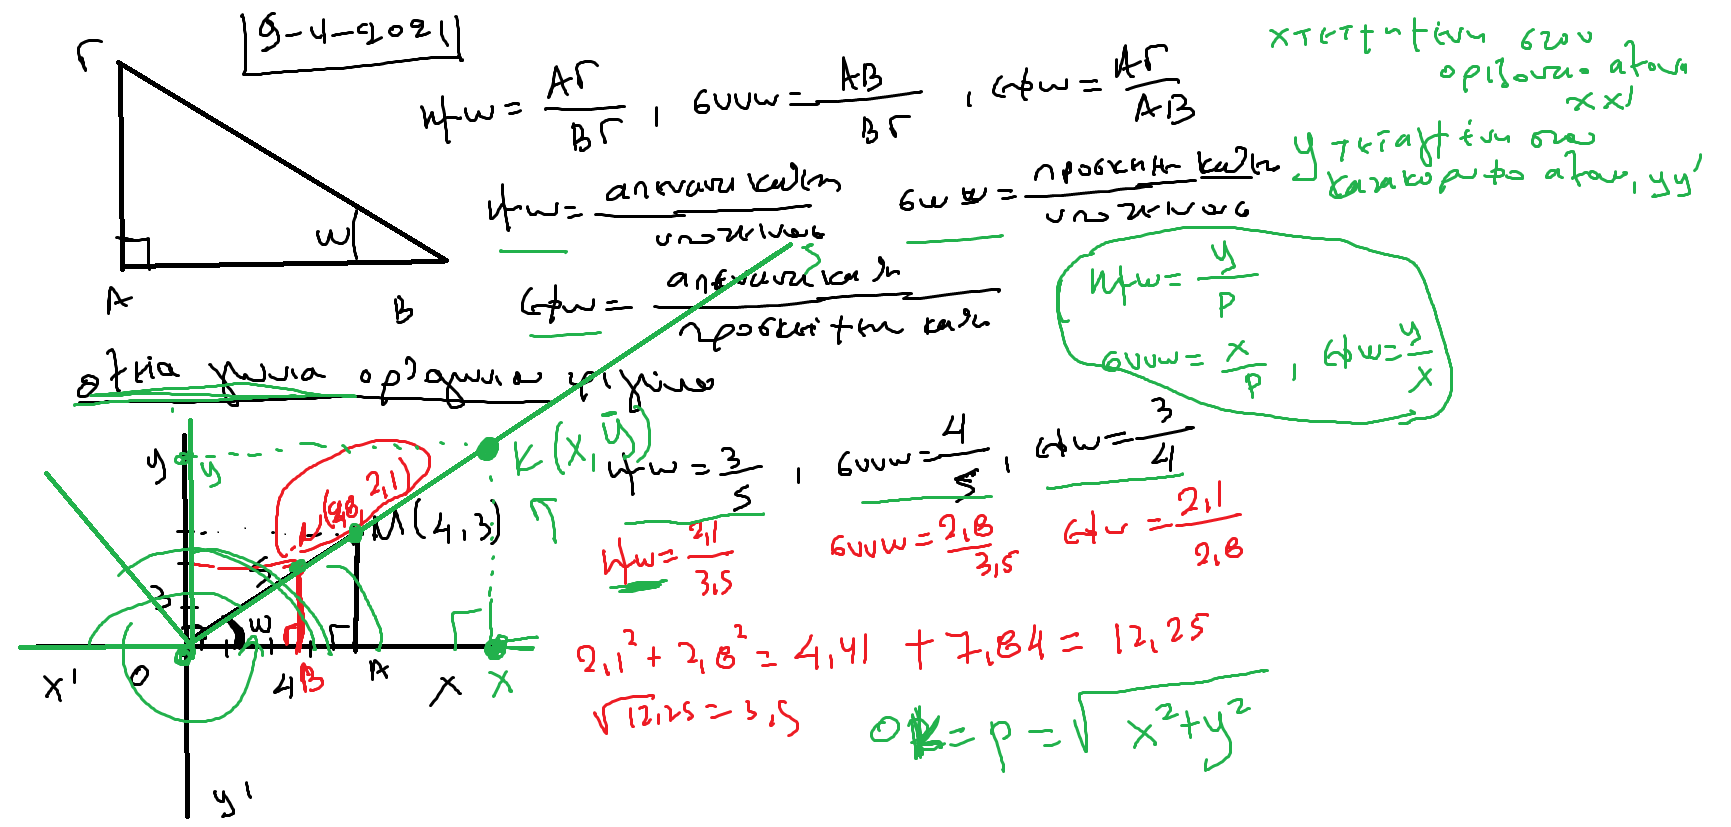 9-4-2021
Γ
Α
Β
ω
ημω = ΑΓ/ΒΓ , συνω = ΑΒ/ΒΓ , εφω = ΑΓ/ΑΒ
ημω = απεναντι καθετη/υποτεινουσα
συνω = προσκειμενη καθετη/υποτεινουσα
εφω = απεναντι καθετη/προσκειμενη καθετη
χ τετμημενη στον
οριζοντιο αξονα
xx'
y τεταγμενη στον
κατακορυφο αξονα, yy'
ημω = y/ρ
συνω = x/ρ , εφω = y/x
οξεια γωνια ορθογωνιου τριγωνου
y
y
K(x, y)
N(2,8, 2,1)
M(4,3)
5
3
ω
x'
O
4
B
A
x
x
y'
ημω = 3/5 , συνω = 4/5 , εφω = 3/4
ημω = 2,1/3,5
συνω = 2,8/3,5
εφω = 2,1/2,8
2,1² + 2,8² = 4,41 + 7,84 = 12,25
√12,25 = 3,5
ΟΚ = ρ = √x²+y²